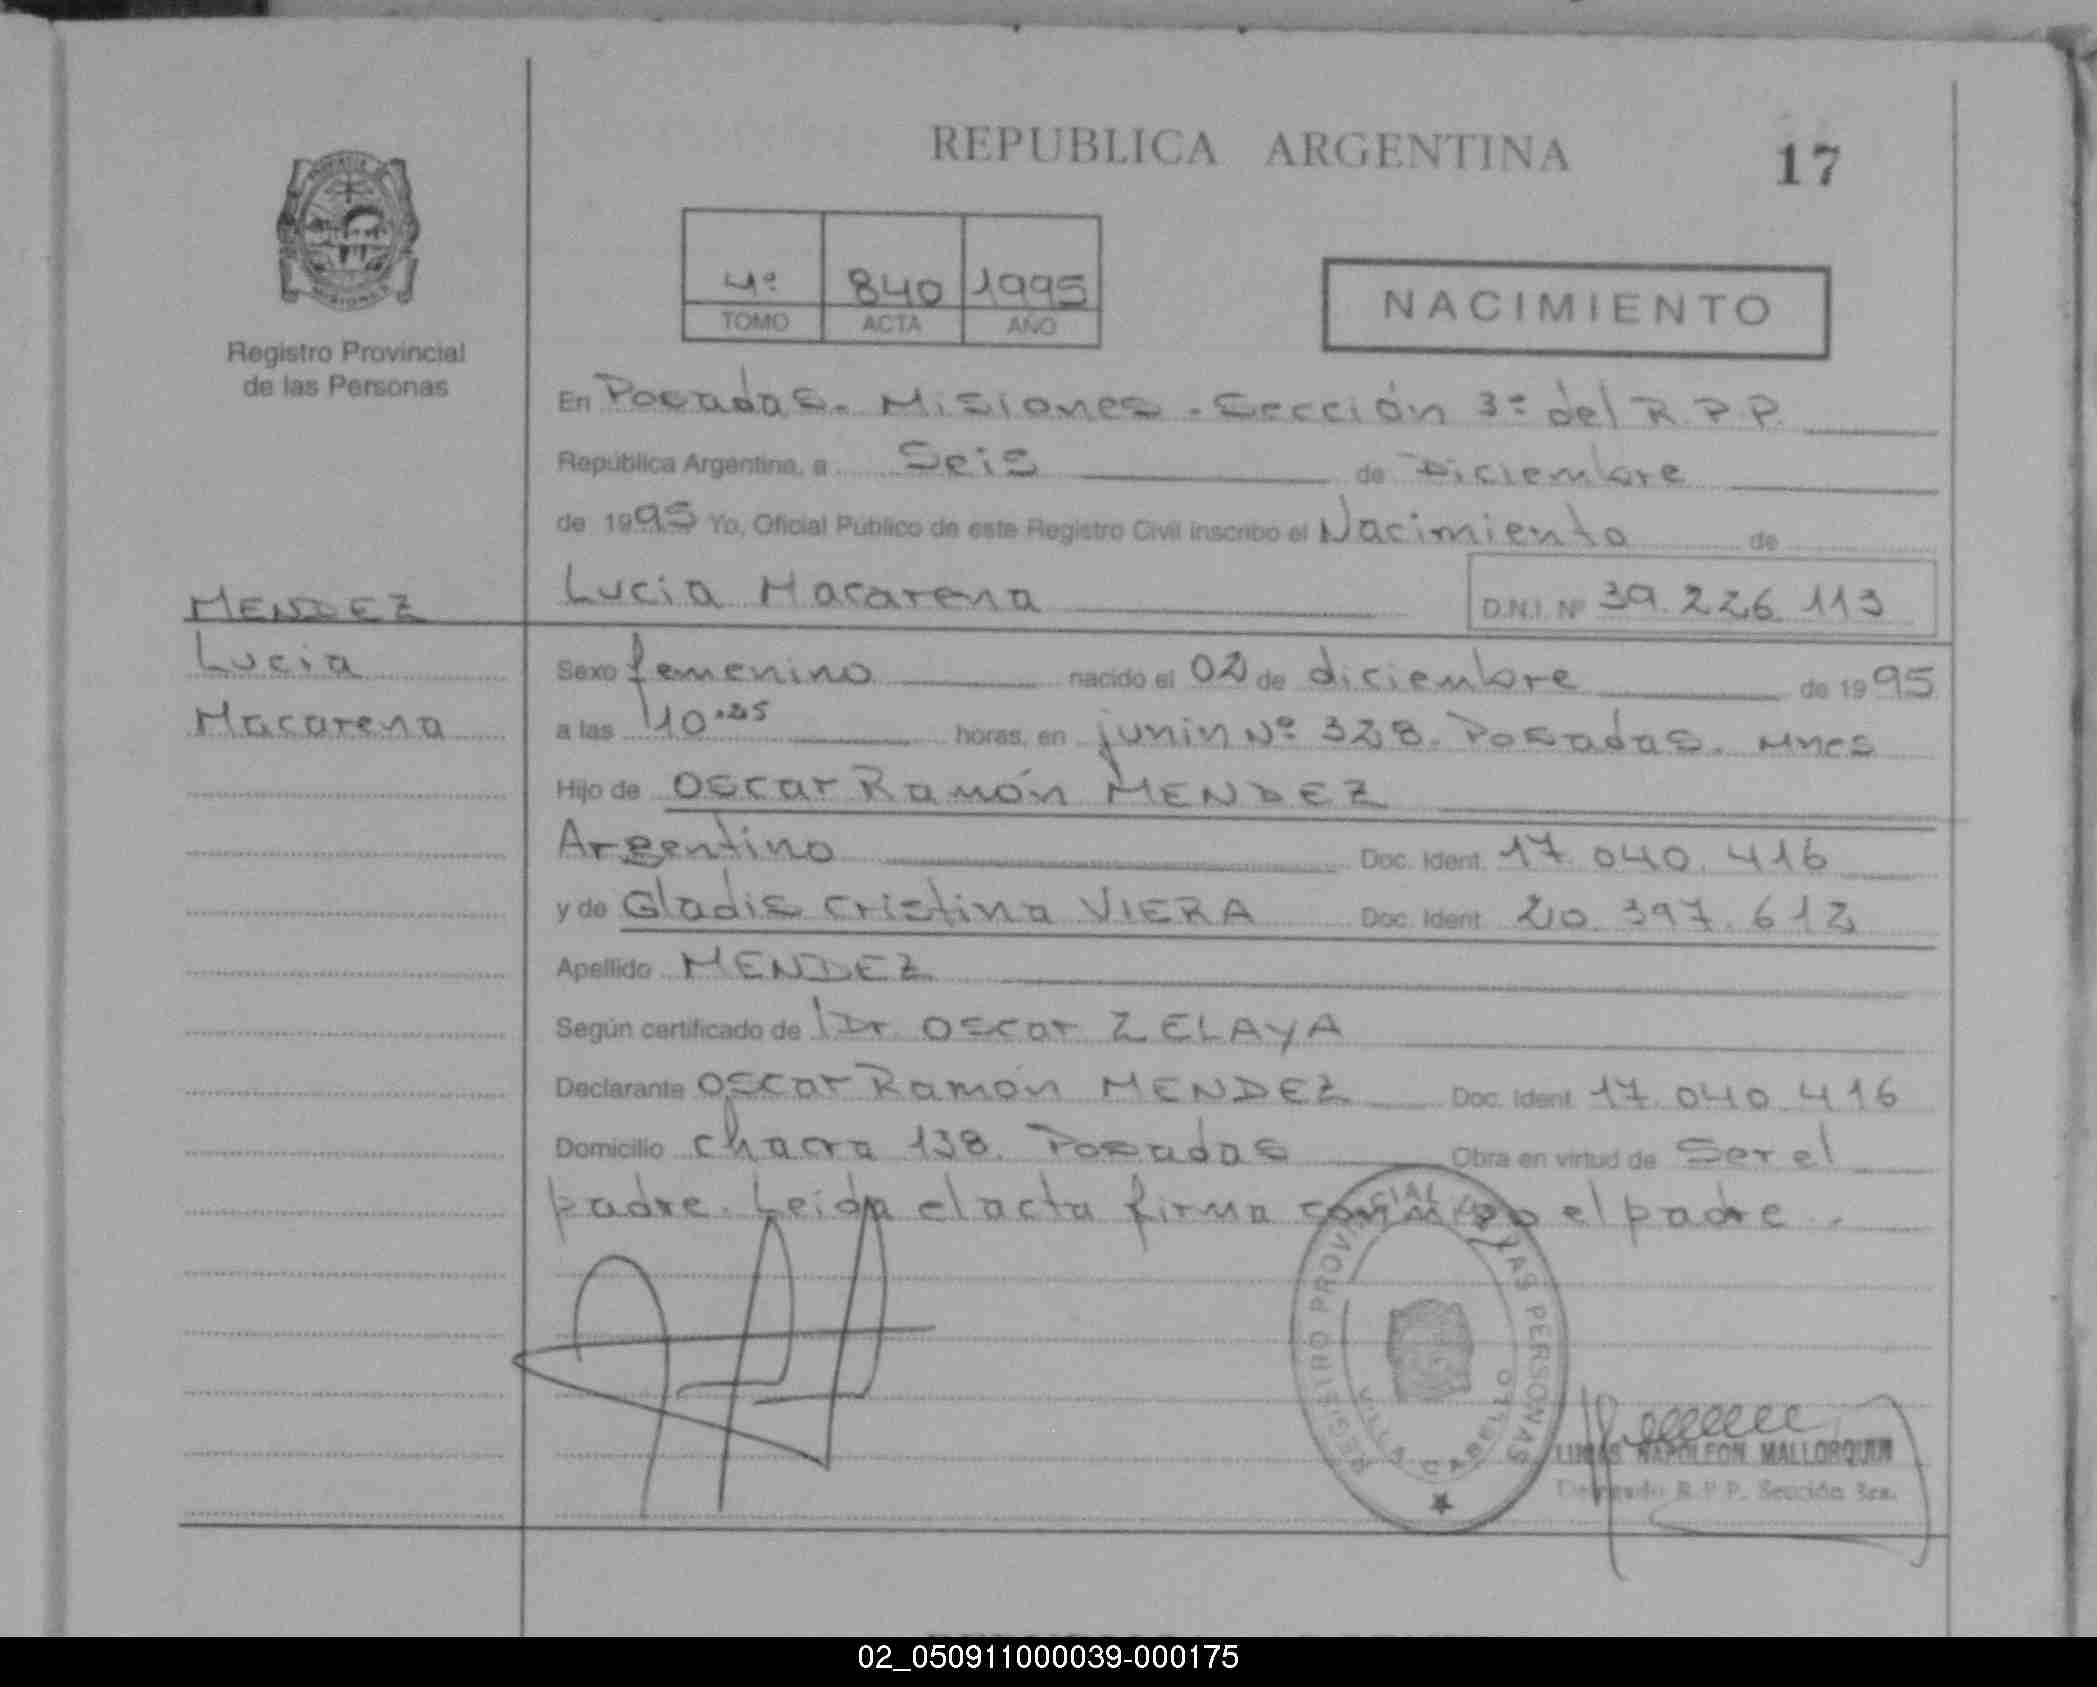 REPUBLICA ARGENTINA
17
4º 840 1995
TOMO ACTA AÑO
NACIMIENTO
Registro Provincial
de las Personas
En Posadas. Misiones. Sección 3ª del R.P.P.
República Argentina, a Seis de Diciembre
de 1995 Yo, Oficial Público de este Registro Civil inscribo el Nacimiento de
Lucia Macarena D.N.I. Nº 39.226.113
MENDEZ
Lucia
Macarena
Sexo femenino nacido el 02 de diciembre de 1995
a las 10.25 horas, en junin Nº 328. Posadas. Mnes
Hijo de Oscar Ramón MENDEZ
Argentino Doc. Ident. 17.040.416
y de Gladis Cristina VIERA Doc. Ident. 20.397.612
Apellido MENDEZ
Según certificado de Dr. Oscar ZELAYA
Declarante Oscar Ramón MENDEZ Doc. Ident. 17.040.416
Domicilio chacra 138. Posadas Obra en virtud de Ser el
padre. Leida el acta firma conmigo el padre.
REGISTRO PROVINCIAL DE LAS PERSONAS
VILLA CABELLO
LUCAS NAPOLEON MALLORQUIN
Delegado R.P.P. Sección 3ra.
02_050911000039-000175